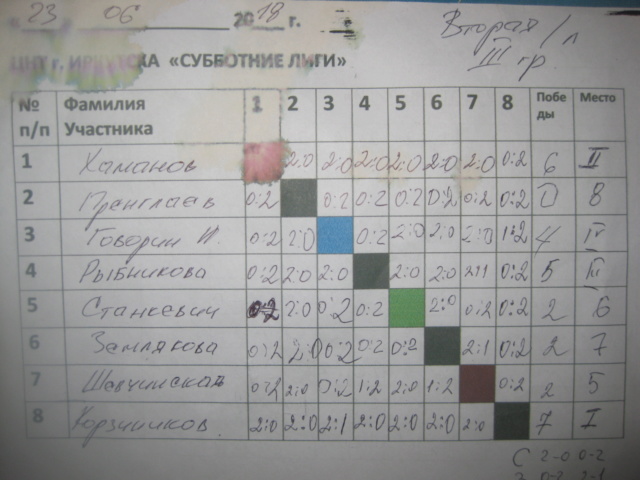 « 23 06 2018 г.
Вторая/л
III гр.
ЦНТ г. ИРКУТСКА «СУББОТНИЕ ЛИГИ»
№ п/п Фамилия Участника 1 2 3 4 5 6 7 8 Победы Место
1 Хаманов 2:0 2:0 2:0 2:0 2:0 2:0 0:2 6 II
2 0:2 0:2 0:2 0:2 0:2 0:2 0:2 0 8
3 Говорин И. 0:2 2:0 0:2 2:0 2:0 2:0 1:2 4 IV
4 Рыбникова 0:2 2:0 2:0 2:0 2:0 2:1 0:2 5 III
5 Станкевич 0:2 2:0 0:2 0:2 2:0 0:2 0:2 2 6
6 Землякова 0:2 2:0 0:2 0:2 0:2 2:1 0:2 2 7
7 0:2 2:0 0:2 1:2 2:0 1:2 0:2 2 5
8 Корзинников 2:0 2:0 2:1 2:0 2:0 2:0 2:0 7 I
С 2-0 0-2